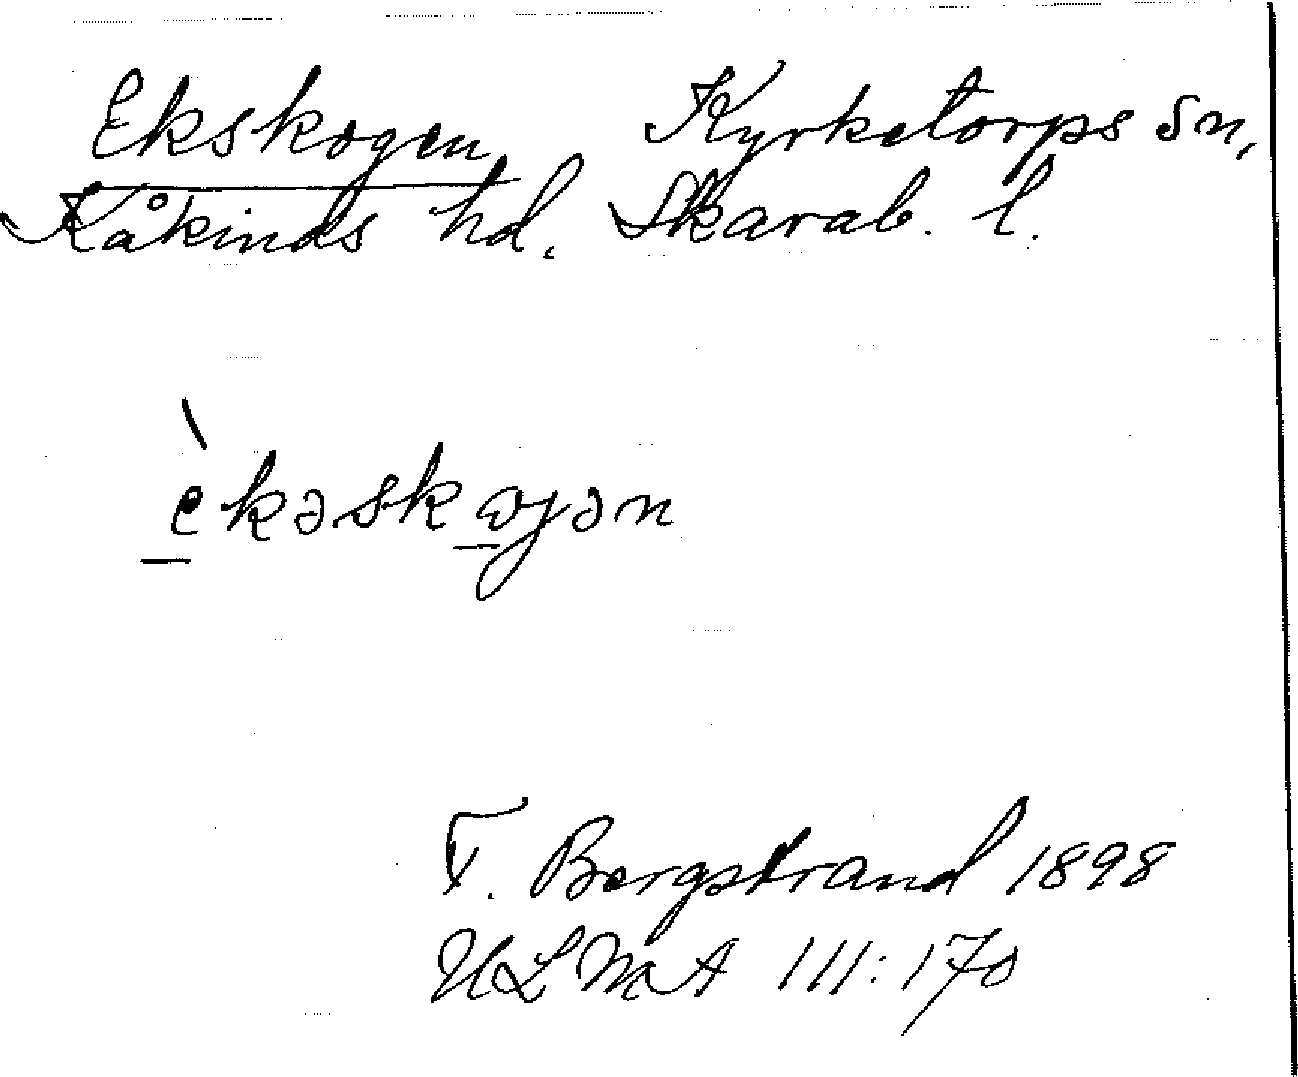 Ekskogen Kyrketorps sn,
Kåkinds hd. Skarab. l.
èkəskωγən
T. Bergstrand 1898
ULMA 111:170